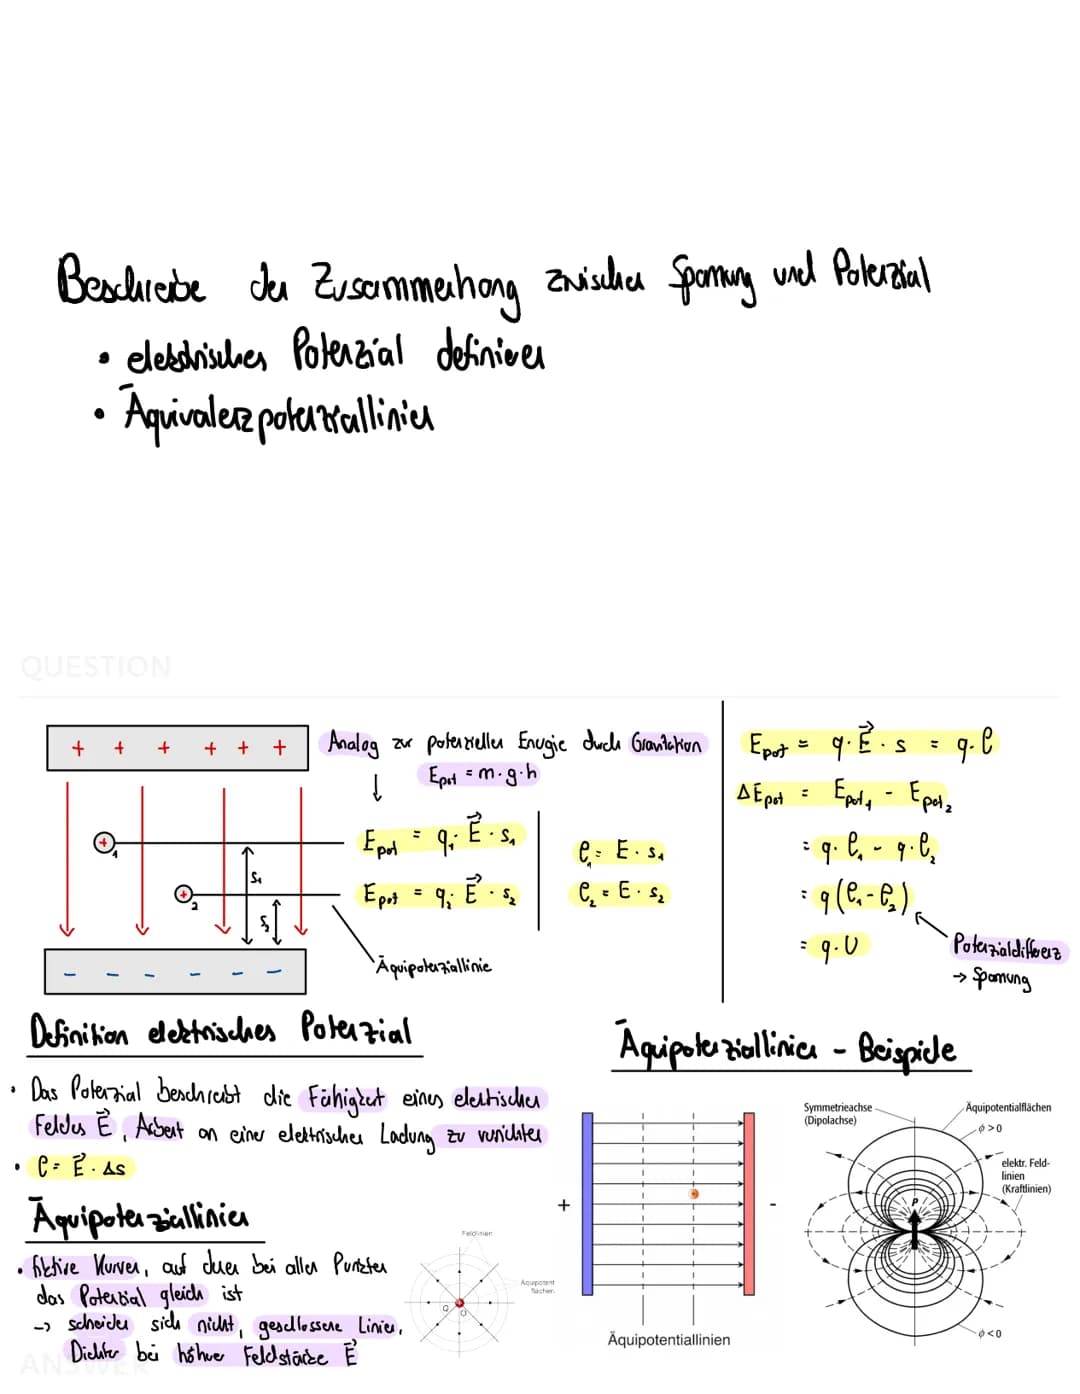 Beschreibe den Zusammenhang zwischen Spannung und Potenzial
• elektrisches Potenzial definieren
• Äquivalenzpotenziallinien
QUESTION
+ + + + + +
Analog zur potenzieller Energie durch Gravitation
Epot = m·g·h
+ 1
Epot = q₁·E⃗·s₁
φ₁ = E·s₁
s₁
+ 2
Epot = q₂·E⃗·s₂
φ₂ = E·s₂
s₂
Äquipotenziallinie
- - - - - -
Epot = q·E⃗·s = q·φ
ΔEpot = Epot₁ - Epot₂
= q·φ₁ - q·φ₂
= q(φ₁-φ₂)
= q·U
Potenzialdifferenz
→ Spannung
Definition elektrisches Potenzial
• Das Potenzial beschreibt die Fähigkeit eines elektrischen
Feldes E⃗, Arbeit an einer elektrischen Ladung zu verrichten
• φ = E⃗·Δs
Äquipotenziallinien
• fiktive Kurven, auf denen bei allen Punkten
das Potenzial gleich ist
→ schneiden sich nicht, geschlossene Linien,
Dichter bei höherer Feldstärke E⃗
ANSWER
Feldlinien
Äquipotent
flächen
Q
Äquipotenziallinien - Beispiele
+
-
Äquipotentiallinien
Symmetrieachse
(Dipolachse)
Äquipotentialflächen
ϕ>0
elektr. Feld-
linien
(Kraftlinien)
P
ϕ<0